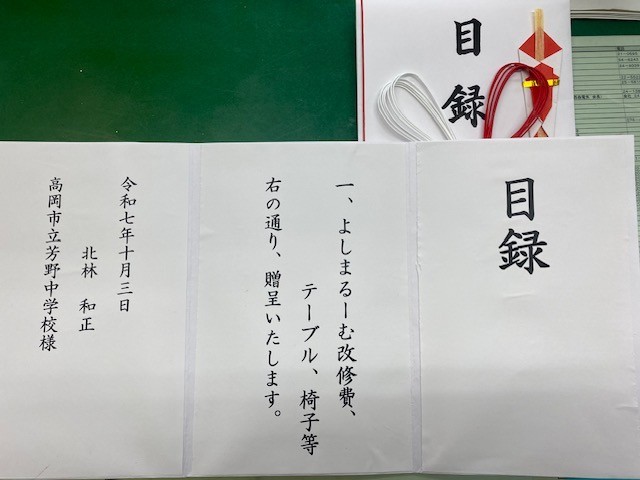 目録
目録
一、よしまるーむ改修費、
テーブル、椅子等
右の通り、贈呈いたします。
令和七年十月三日
北林 和正
高岡市立芳野中学校様